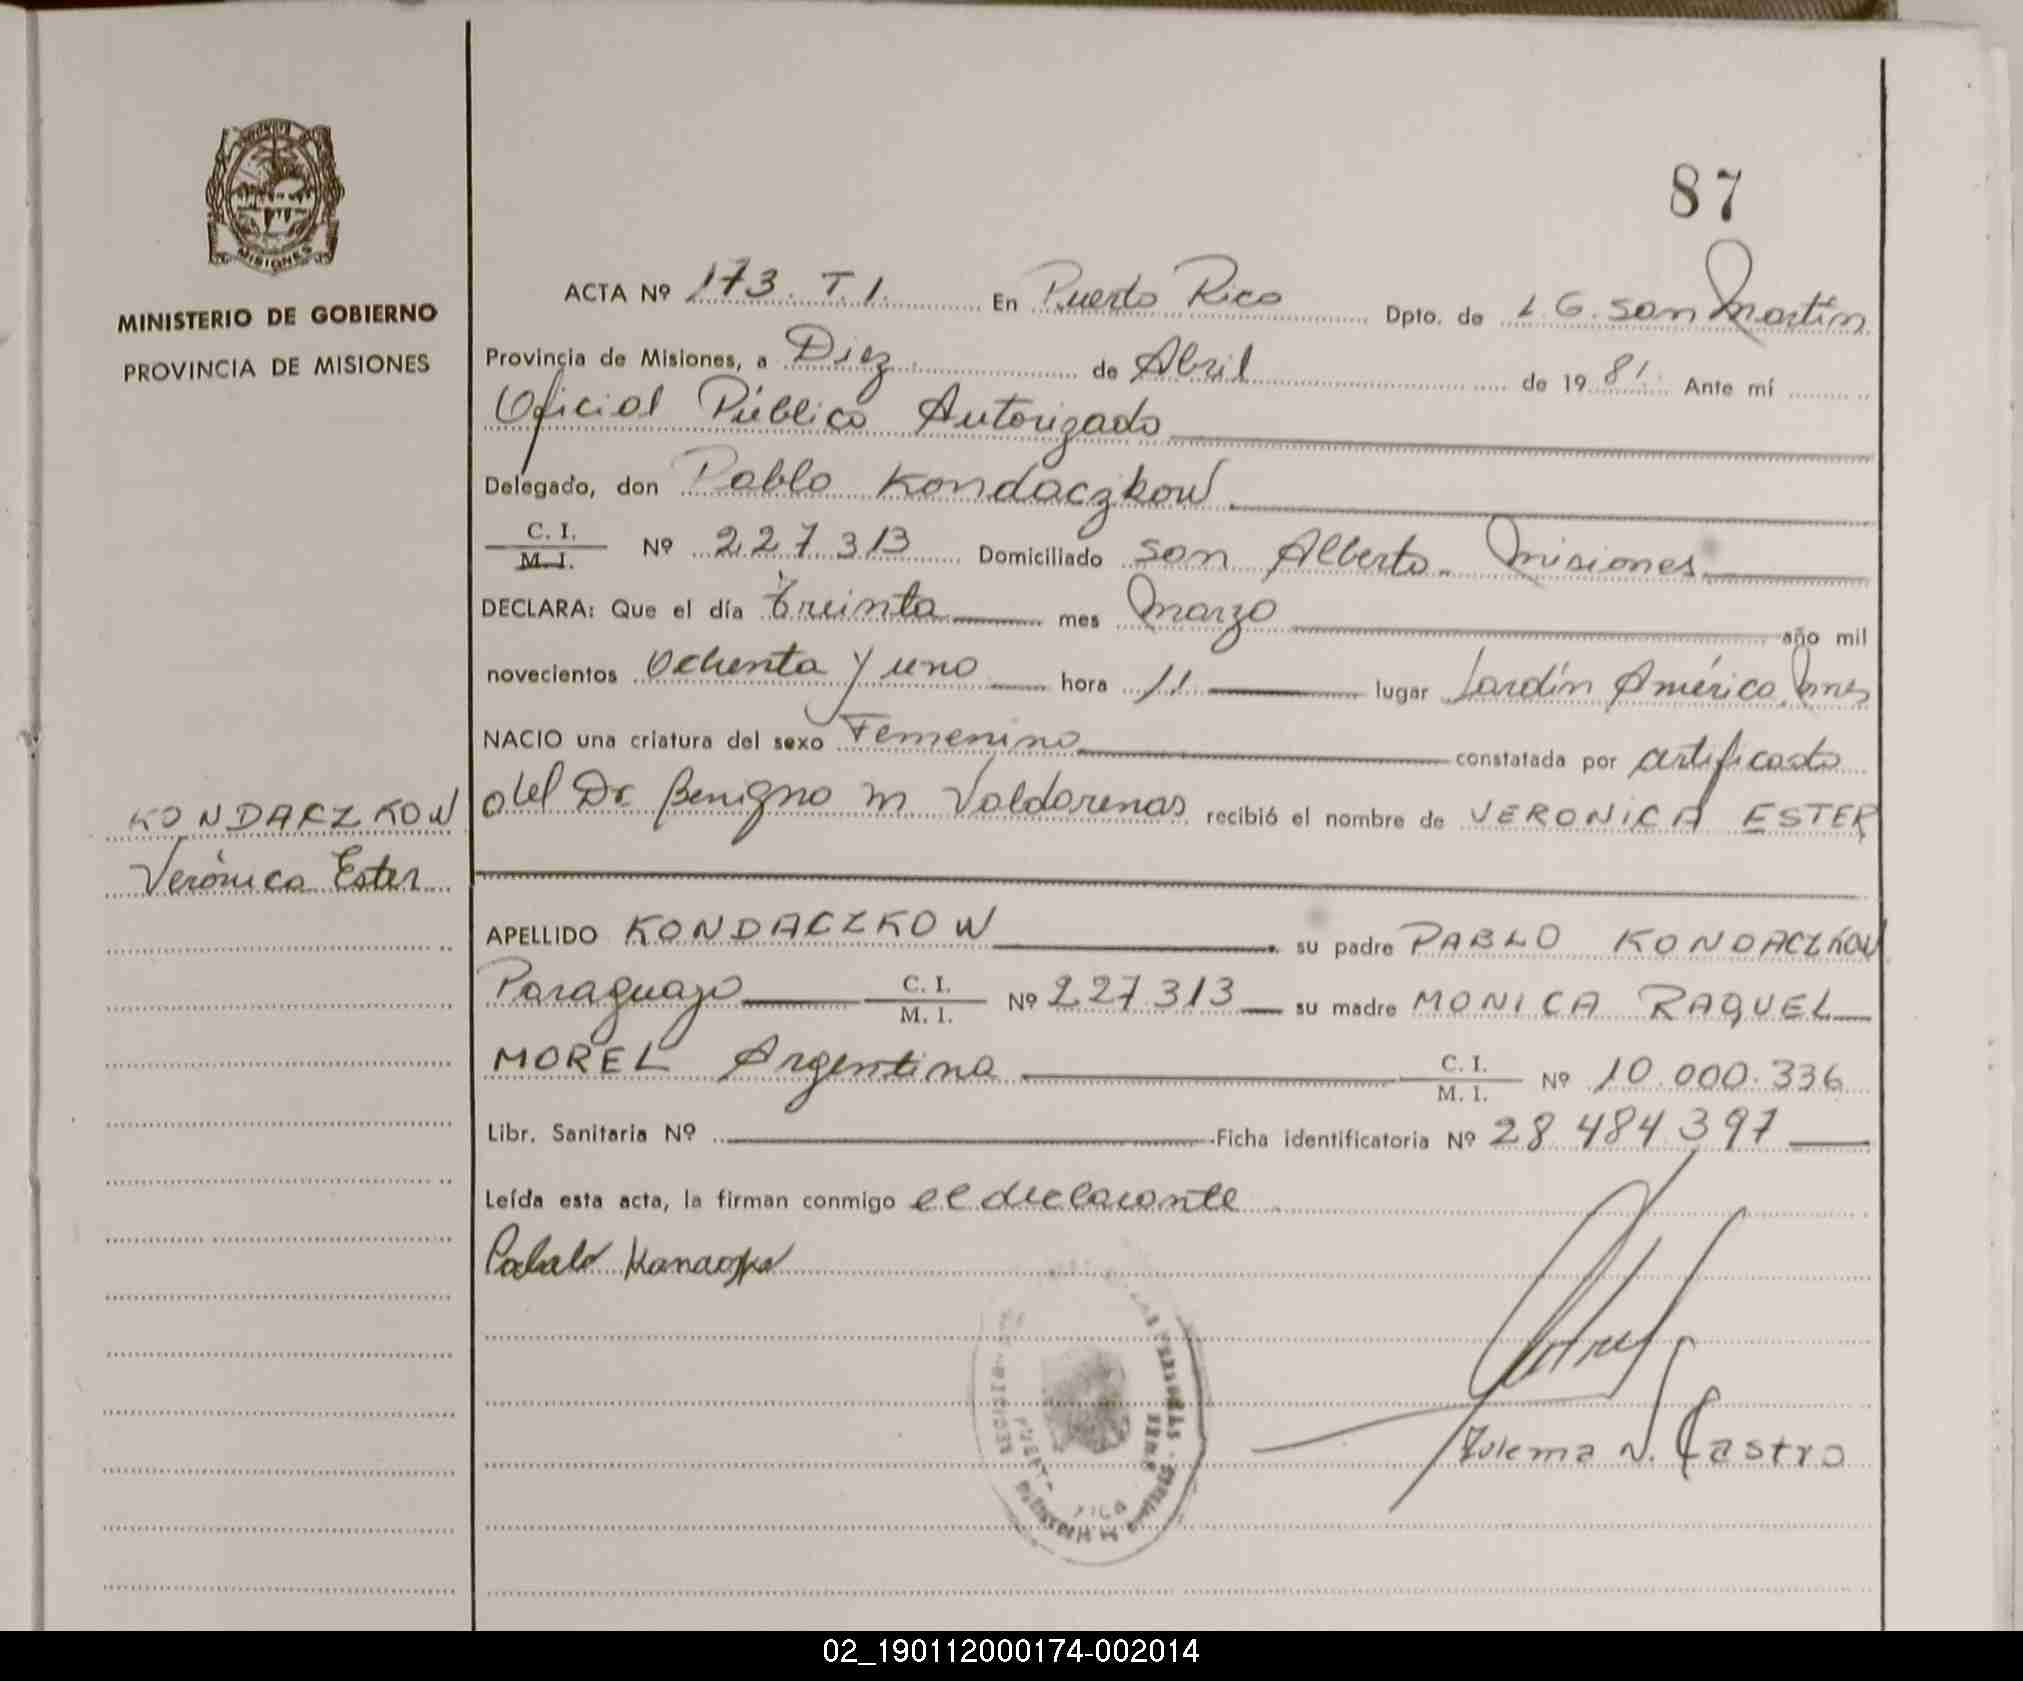 87
MISIONES
MINISTERIO DE GOBIERNO
PROVINCIA DE MISIONES
KONDACZKOW
Verónica Ester
ACTA Nº 173. T.I. En Puerto Rico Dpto. de L.G. San Martín
Provincia de Misiones, a Diez de Abril de 1981. Ante mí
Oficial Público Autorizado
Delegado, don Pablo Kondaczkow
C. I.
M. I. Nº 227.313 Domiciliado San Alberto. Misiones
DECLARA: Que el día treinta mes Marzo año mil
novecientos Ochenta y uno hora 11 lugar Jardín América, Mnes
NACIO una criatura del sexo Femenino constatada por certificado
del Dr Benigno M Valdorenas recibió el nombre de VERONICA ESTER
APELLIDO KONDACZKOW su padre PABLO KONDACZKOW
Paraguayo C. I.
M. I. Nº 227.313 su madre MONICA RAQUEL
MOREL Argentina C. I.
M. I. Nº 10.000.336
Libr. Sanitaria Nº Ficha identificatoria Nº 28.484.397
Leída esta acta, la firman conmigo el declarante
Zulema N. Castro
02_190112000174-002014